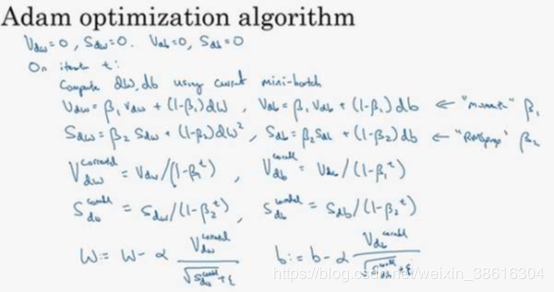 Adam optimization algorithm
V_dw = 0, S_dw = 0. V_db = 0, S_db = 0
On iteration t:
Compute dW, db using current mini-batch
V_dw = β₁ V_dw + (1-β₁) dW , V_db = β₁ V_db + (1-β₁) db ← "momentum" β₁
S_dw = β₂ S_dw + (1-β₂) dW² , S_db = β₂ S_db + (1-β₂) db ← "RMSprop" β₂
V_dw^corrected = V_dw/(1-β₁^t) , V_db^corrected = V_db/(1-β₁^t)
S_dw^corrected = S_dw/(1-β₂^t) , S_db^corrected = S_db/(1-β₂^t)
W := W - α V_dw^corrected / (√S_dw^corrected + ε) b := b - α V_db^corrected / (√S_db^corrected + ε)
https://blog.csdn.net/weixin_38616304